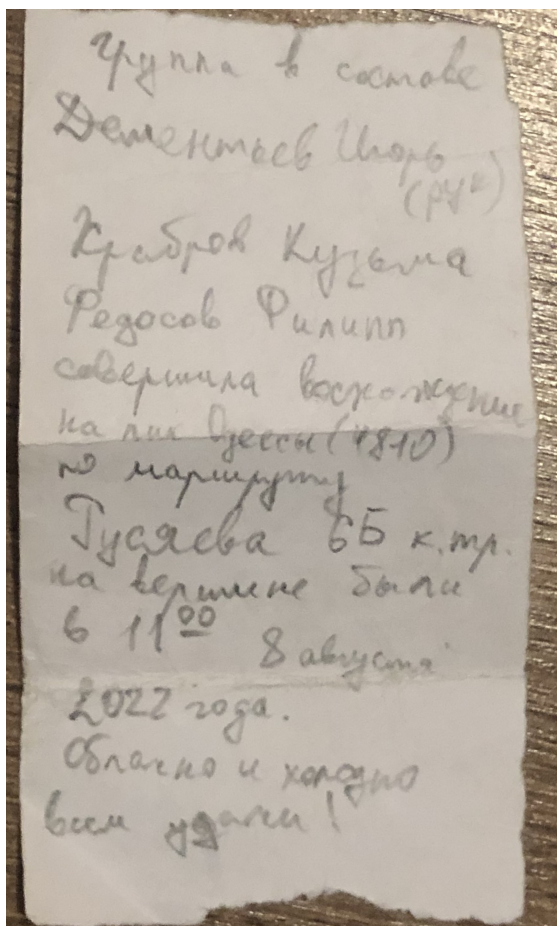 Группа в составе
Дементьев Игорь
(рук)
Храбров Кузьма
Федосов Филипп
совершила восхождение
на пик Одессы (4810)
по маршруту
Гусяева 6Б к.тр.
на вершине были
в 11⁰⁰ 8 августа
2022 года.
Облачно и холодно
всем удачи!